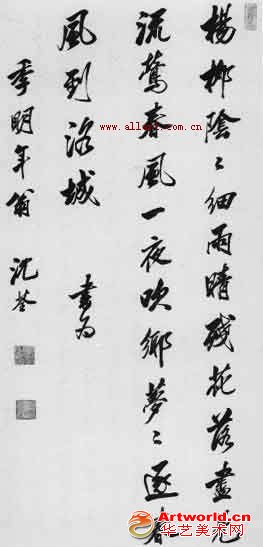 楊柳陰〻細雨晴殘花落盡見
流鶯春風一夜吹鄉夢〻逐春
風到洛城 書為
季明年翁 沈荃
Artworld.cn
华艺美术网